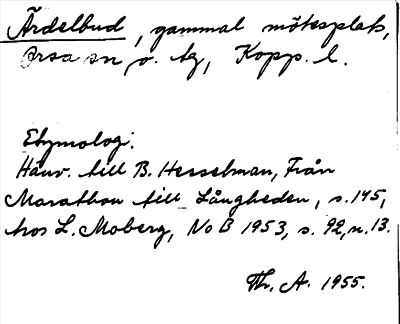 Ärdelbud, gammal mötesplats,
Orsa sn o. tg, Kopp. l.
Etymologi:
Hänv. till B. Hesselman, Från
Marathon till Långheden, s. 145,
hos L. Moberg, NoB 1953, s. 92, n. 13.
Th. A. 1955.